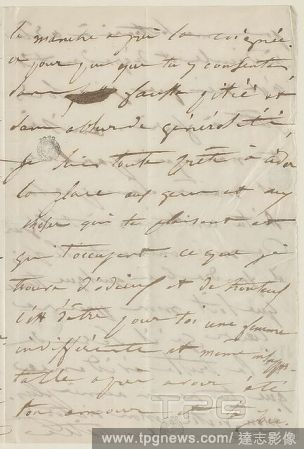 le manche après la cognée
ce jour que tu y consente
sans fausse pitié et
sans absurde générosité
Je suis toute prête à
la place aux gens et aux
choses qui te plaisent et
qui t'occupent. ce que je
trouve d'odieux et de honteux
c'est d'être pour toi une
indifférente et même
table après avoir été
ton amour et
TPG
www.tpgnews.com/達志影像